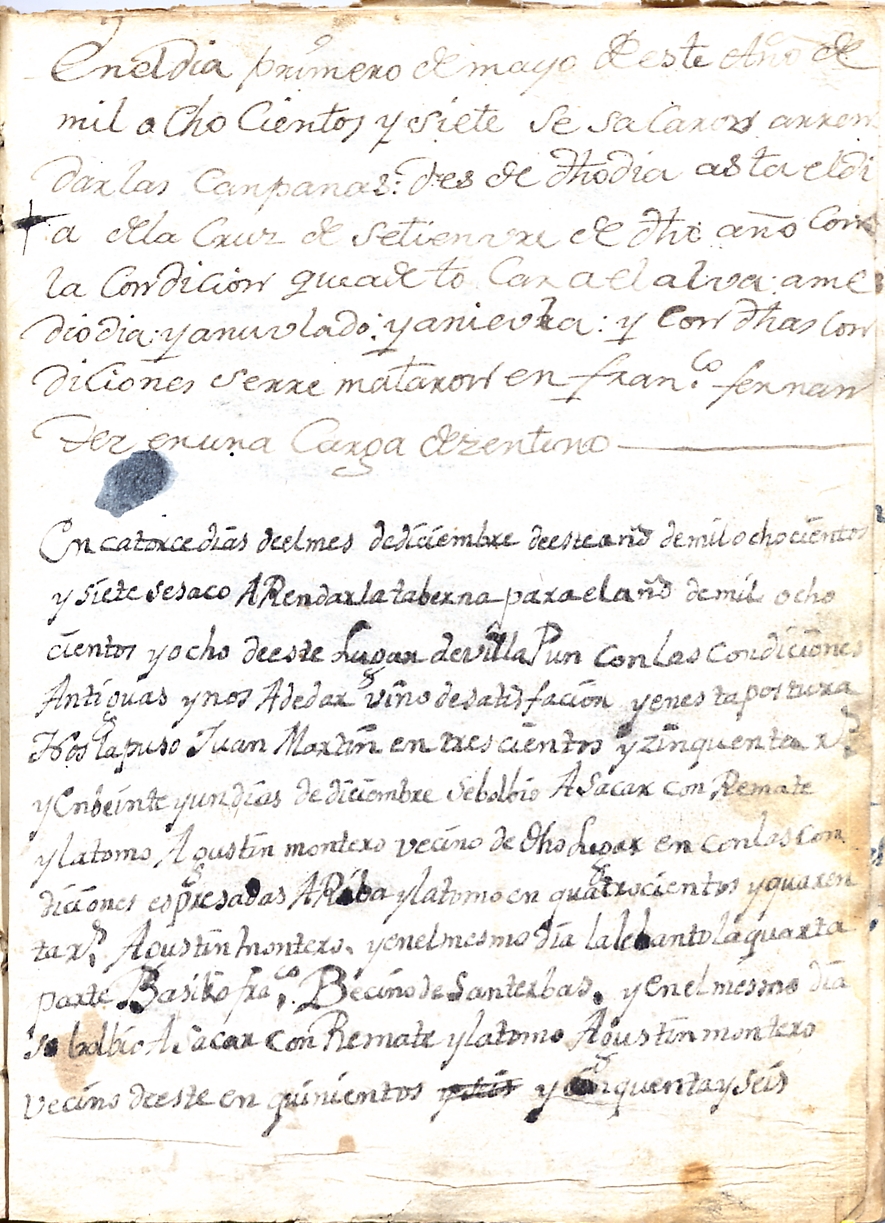 En el dia primero de mayo de este Año de
mil ocho Cientos y siete se sacaron arren
dar las Canpanas: des de dho dia asta el di
a de la Cruz de setienvre de dho año Con
la Condicion que a de to Car a el alva: a me
dio dia: y a nuvlado: y a nievla: y con dhas con
diciones se rre mataron en fran.co fernan
dez en una Carga de zenteno
En catorce dias de el mes de diciembre de este año de mil ochocientos
y siete se saco A Rendar la taberna para el año de mil ocho
cientos y ocho de este Lugar de villa Pun con las condiciones
Antiguas y nos A de dar vino de satisfacion y en esta postura
Nos la puso Juan Martin en trescientos y zinquenta r.s
y En beinte y un dias de diciembre se bolbio A Sacar con Remate
y la tomo Agustin montero vecino de dho Lugar en con las con
diciones espresadas A Riba y la tomo en quatrocientos y quaren
ta r.s Agustin montero, y en el mesmo dia la lebanto la quarta
parte Basilio fra.co Becino de Santerbas, y en el mesmo dia
se bolbio A Sacar con Remate y la tomo Agustin montero
vecino de este en quinientos y seis y cinquenta y seis